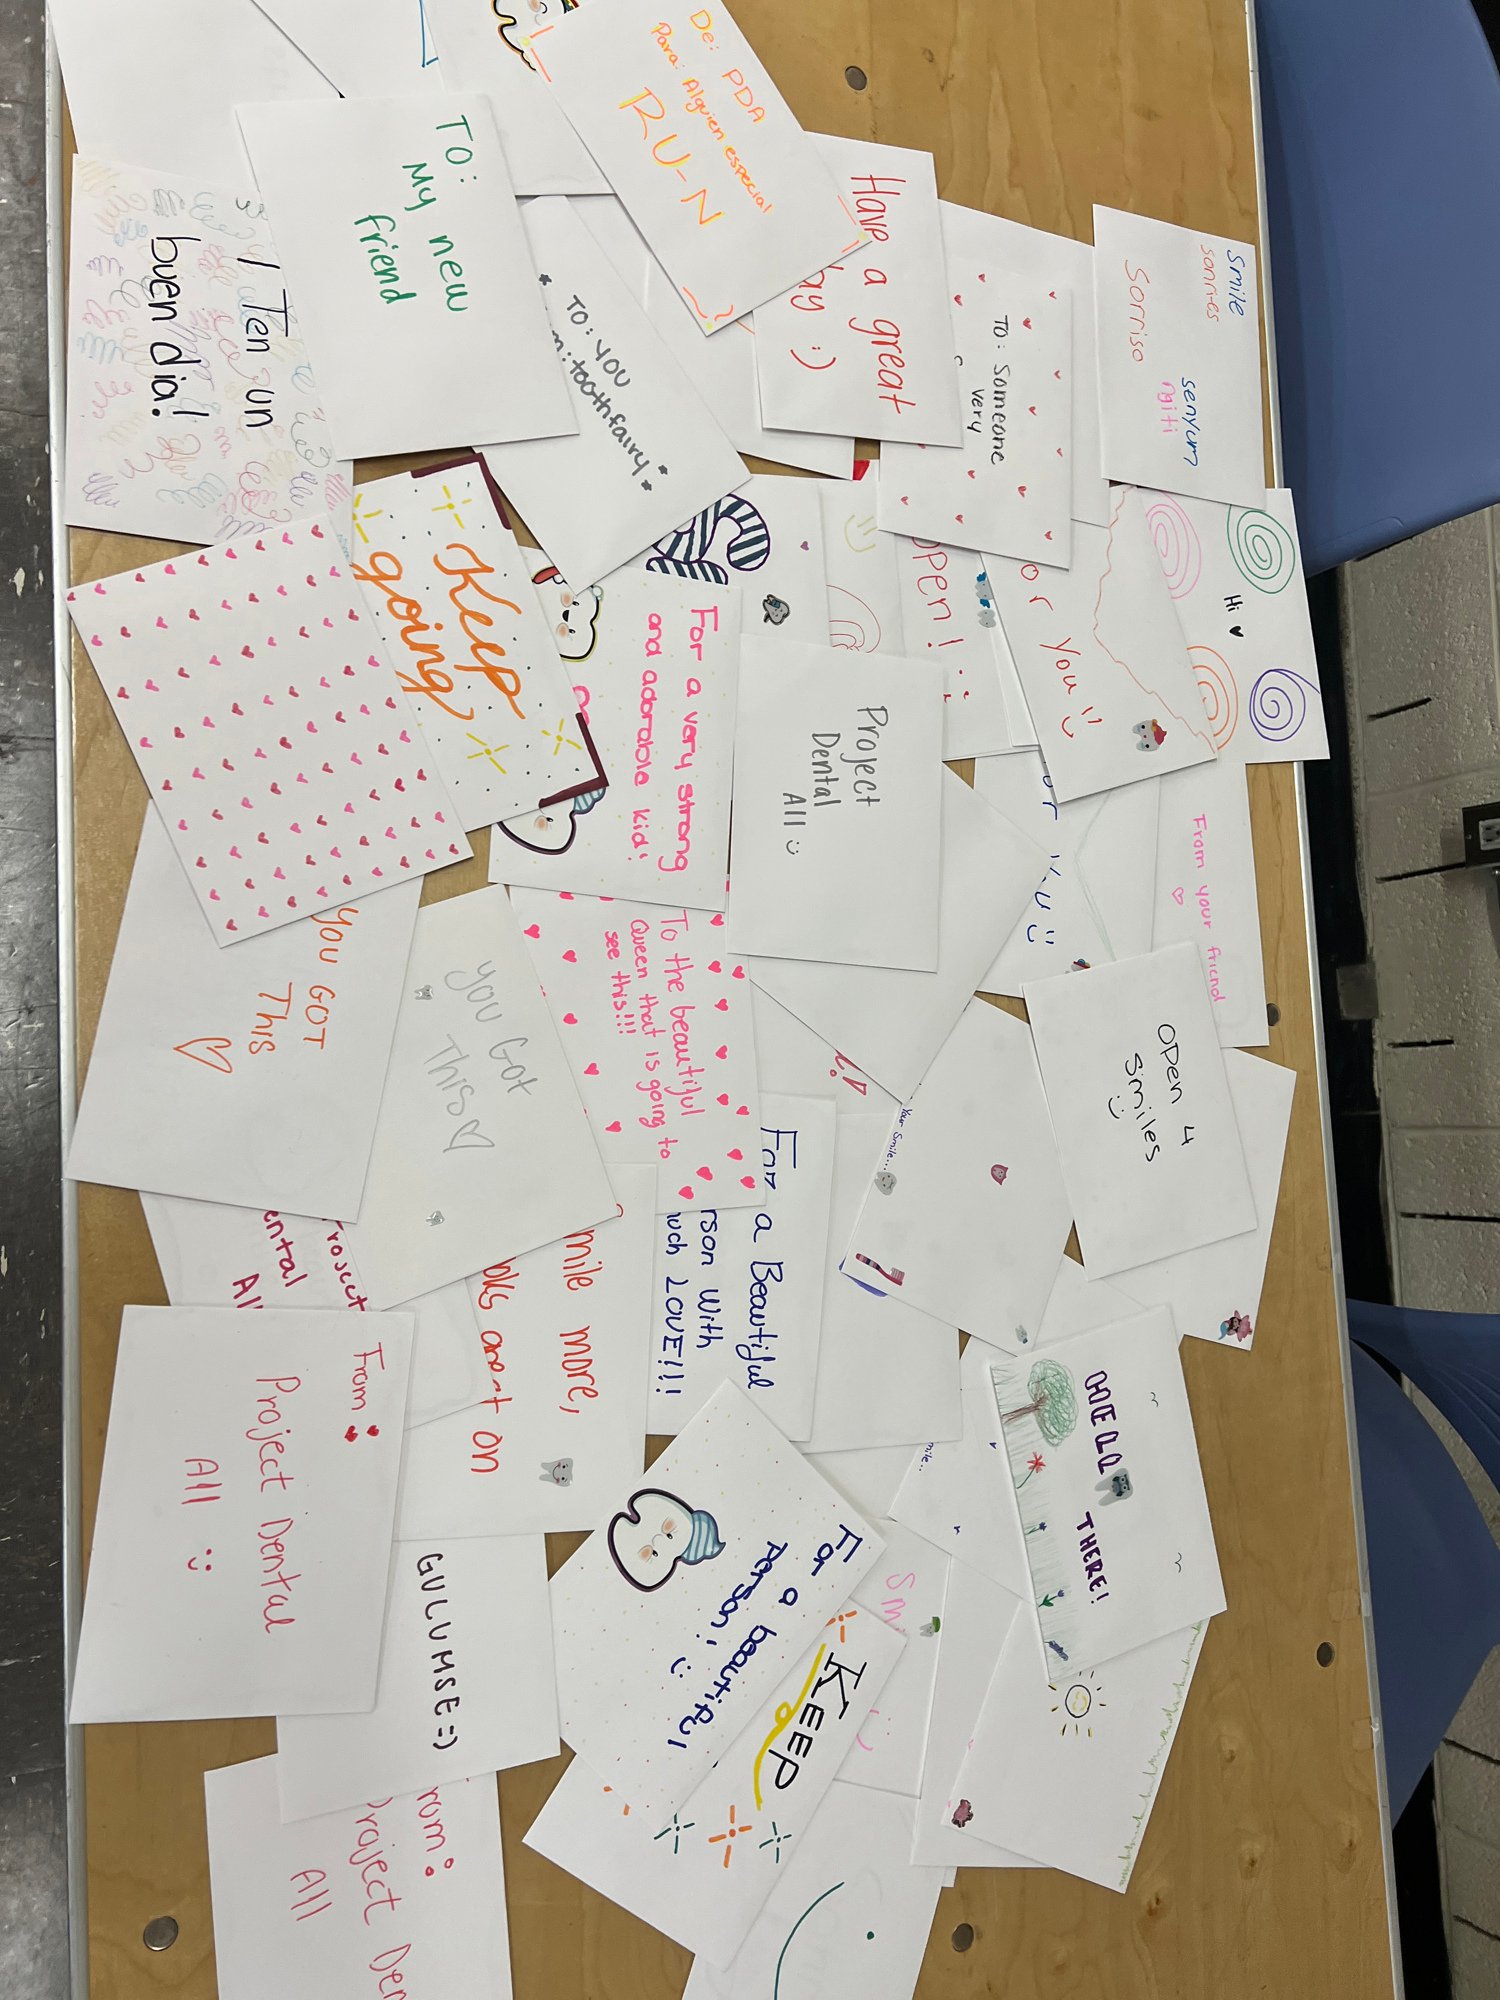 De: PDA
Para: Alguien especial
RU-N
TO:
My new
friend
Ten un
buen dia!
Have a great
TO: YOU
toothfairy
TO: Someone
very
smile
sonries
Sorriso
senyum
ngiti
Hi
Keep
going
For a very strong
and adorable kid!
open!
or you
Project
Dental
All
From your friend
You GOT
This
You Got
This
To the beautiful
Queen that is going to
see this!!!
For a Beautiful
rson with
uch LOVE!!!
Your Smile...
open 4
smiles
roject
ental
All
mile more,
on
From
Project Dental
All
THERE!
GULUMSE :)
For a beautiful
person!
KEEP
Sm
rom:
Project Den
All